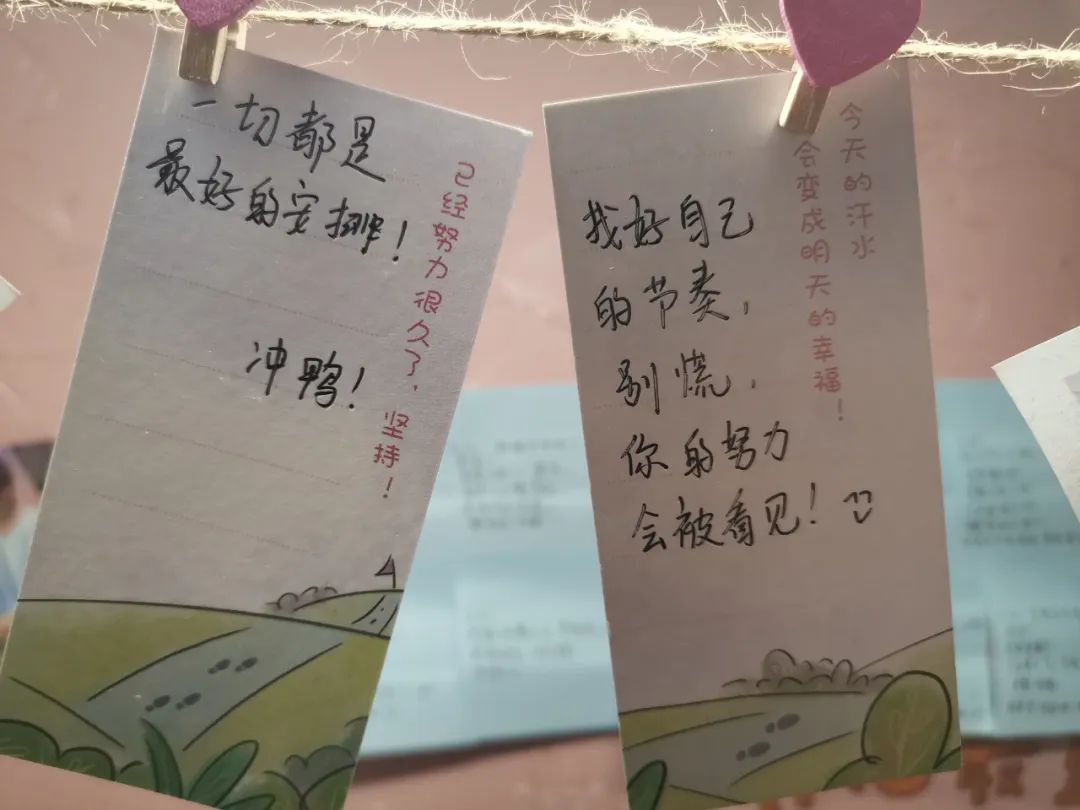 一切都是
最好的安排！
冲鸭！
已经努力很久了，坚持！
找好自己
的节奏，
别慌，
你的努力
会被看见！
今天的汗水
会变成明天的幸福！